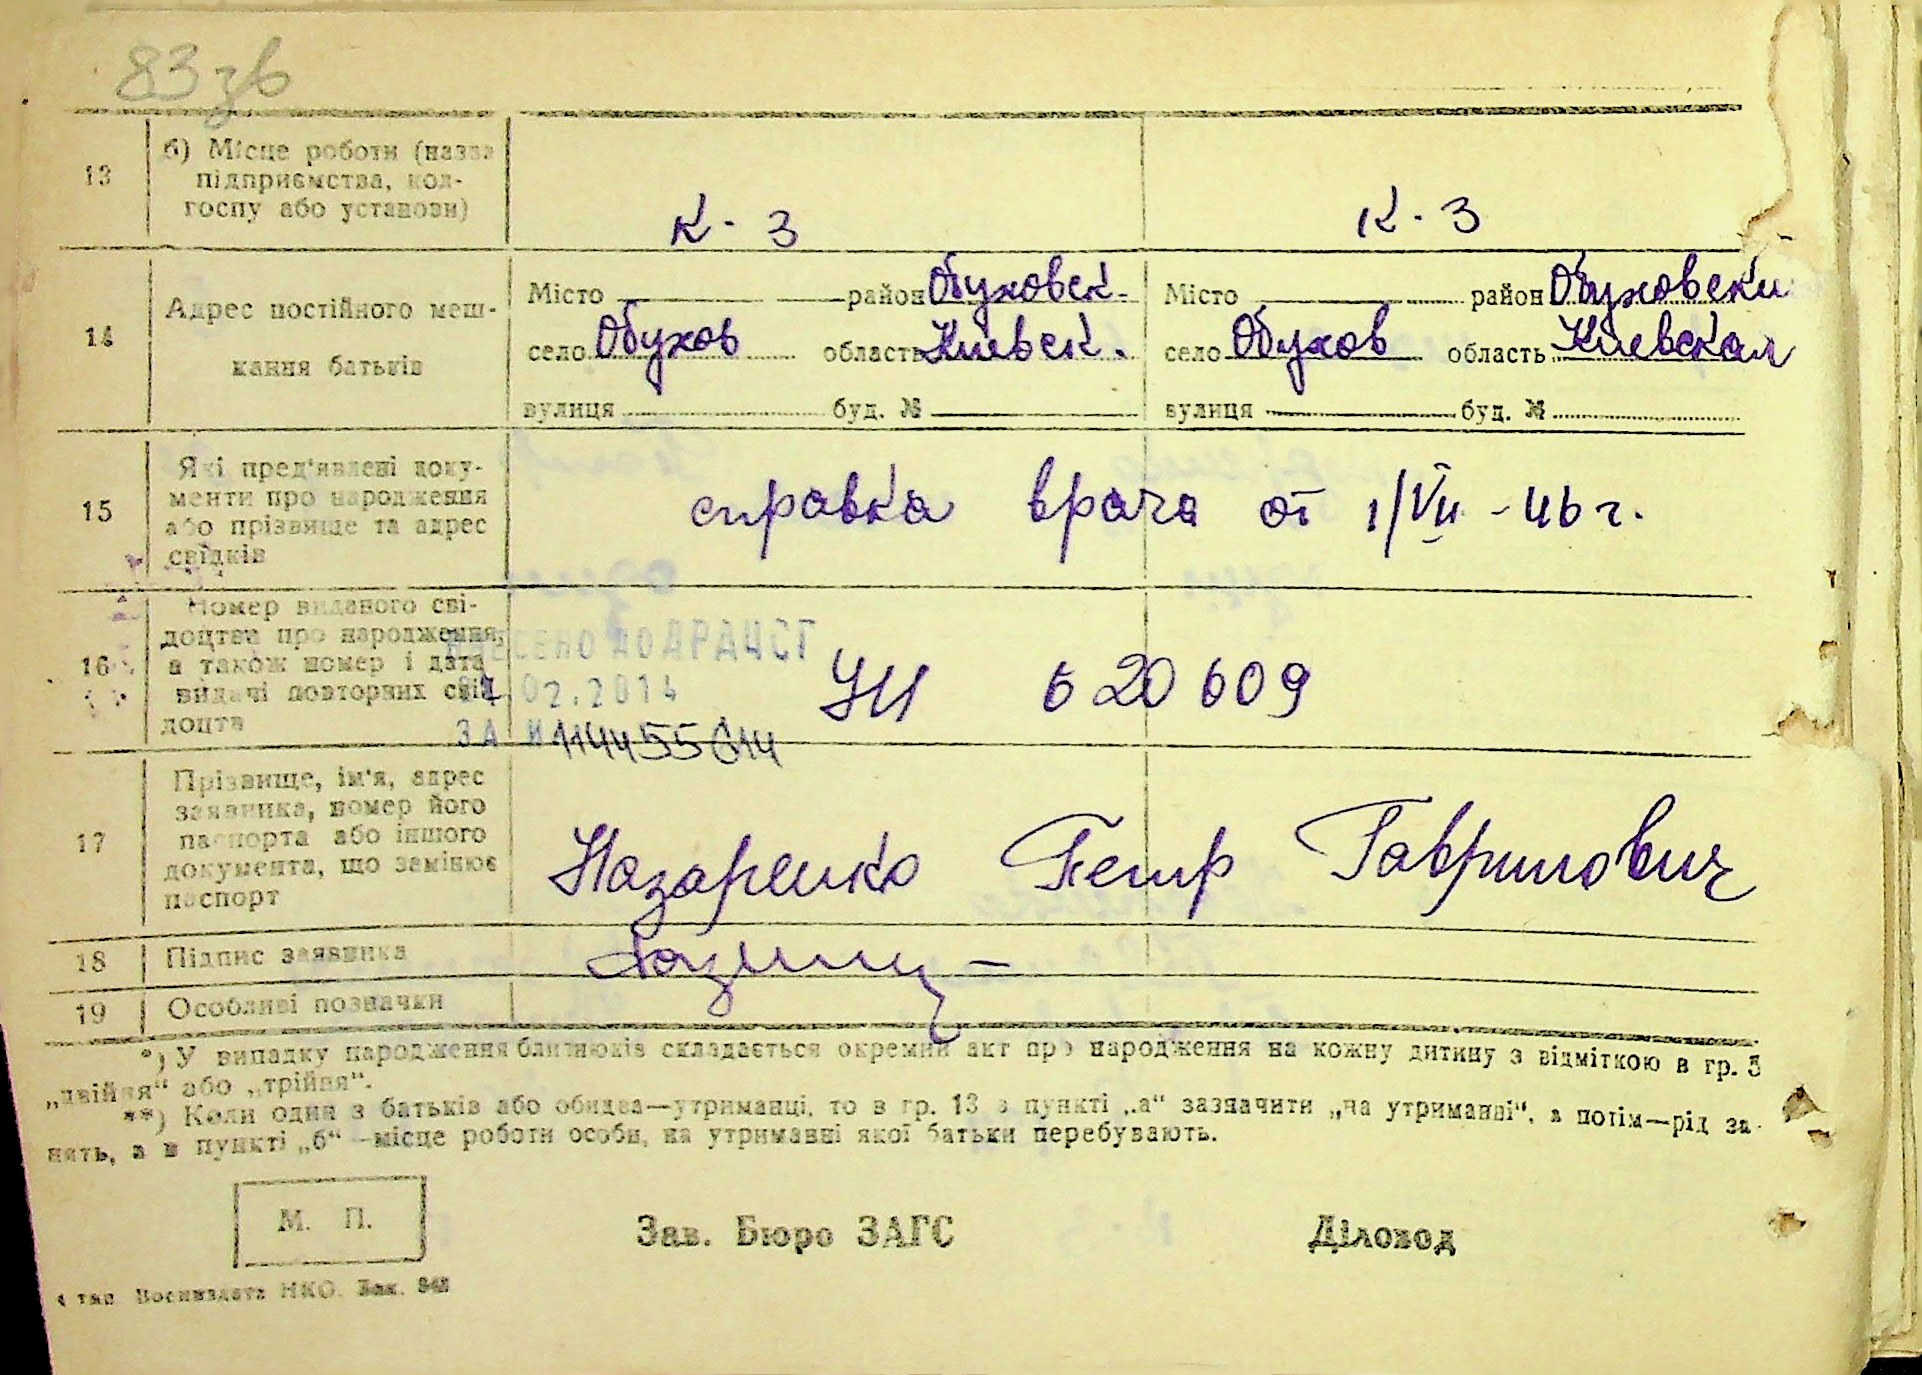 83 зв
13 б) Місце роботи (назва
підприємства, кол-
госпу або установи)
К - З К - З
14 Адрес постійного меш-
кання батьків
Місто район Обуховск. Місто район Обуховски
село Обухов область Киевск. село Обухов область Киевская
вулиця буд. № вулиця буд. №
15 Які пред'явлені доку-
менти про народження
або прізвище та адрес
свідків
справка врача от 1/VII - 46 г.
16 Номер виданого сві-
доцтва про народження,
а також номер і дата
видачі повторних свід
доцтв
ВНЕСЕНО ДО ДРАЦСГ
02.2014
ЗА № 114455614
УИ 620609
17 Прізвище, ім'я, адрес
заявника, номер його
паспорта або іншого
документа, що замінює
паспорт
Назаренко Петр Гаврилович
18 Підпис заявника
19 Особливі позначки
*) У випадку народження близнюків складається окремий акт про народження на кожну дитину з відміткою в гр. 5
„двійня“ або „трійня“.
**) Коли один з батьків або обидва—утриманці, то в гр. 13 в пункті „а“ зазначити „на утриманні“, а потім—рід за-
нять, а в пункті „б“—місце роботи особи, на утриманні якої батьки перебувають.
М. П.
Зав. Бюро ЗАГС Діловод
4 тип. Воениздата НКО. Зак.